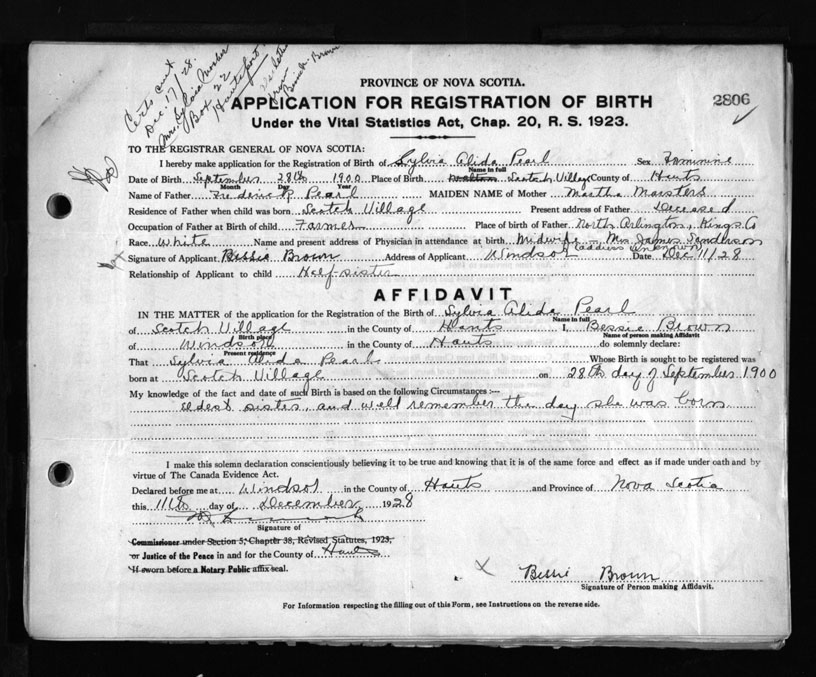 Certs sent
Dec. 17/28.
Mrs. Sylvia Mosher
Box 22
Hantsport
Brown
PROVINCE OF NOVA SCOTIA.
APPLICATION FOR REGISTRATION OF BIRTH
2806
Under the Vital Statistics Act, Chap. 20, R. S. 1923.
TO THE REGISTRAR GENERAL OF NOVA SCOTIA:
I hereby make application for the Registration of Birth of Sylvia Alida Pearl Sex Feminine
Name in full
Date of Birth September 28th 1900 Place of Birth Scotch Village County of Hants
Month Day Year
Name of Father Frederic R. Pearl MAIDEN NAME of Mother Martha Marsters
Residence of Father when child was born Scotch Village Present address of Father Deceased
Occupation of Father at Birth of child Farmer Place of birth of Father North Arlington, Kings Co
Race White Name and present address of Physician in attendance at birth Midwife Mrs James Sanderson
(address unknown)
Signature of Applicant Bessie Brown Address of Applicant Windsor Date Dec 11/28
Relationship of Applicant to child Half-sister
AFFIDAVIT
IN THE MATTER of the application for the Registration of the Birth of Sylvia Alida Pearl
Name in full
of Scotch Village in the County of Hants I, Bessie Brown
Birth place Name of person making Affidavit
of Windsor in the County of Hants do solemnly declare:
Present residence
That Sylvia Alida Pearl Whose Birth is sought to be registered was
born at Scotch Village on 28th day of September 1900
My knowledge of the fact and date of such Birth is based on the following Circumstances :—
eldest sister, and well remember the day she was born
I make this solemn declaration conscientiously believing it to be true and knowing that it is of the same force and effect as if made under oath and by
virtue of The Canada Evidence Act.
Declared before me at Windsor in the County of Hants and Province of Nova Scotia
this 11th day of December 1928
Signature of
Commissioner under Section 5, Chapter 38, Revised Statutes, 1923,
or Justice of the Peace in and for the County of Hants
If sworn before a Notary Public affix seal.
x Bessie Brown
Signature of Person making Affidavit.
For Information respecting the filling out of this Form, see Instructions on the reverse side.